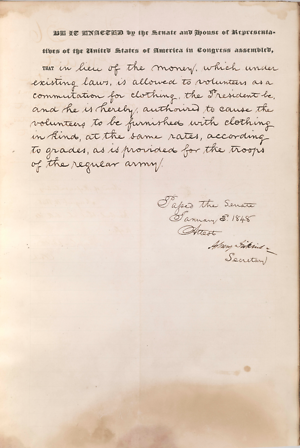 BE IT ENACTED by the Senate and House of Representa-
tives of the United States of America in Congress assembled,
THAT in lieu of the money, which under
existing laws, is allowed to volunteers as a
commutation for clothing, the President be,
and he is hereby, authorized to cause the
volunteers to be furnished with clothing
in kind, at the same rates, according
to grades, as is provided for the troops
of the regular army.
Passed the Senate
January 3, 1848
Attest
Asbury Dickins
Secretary